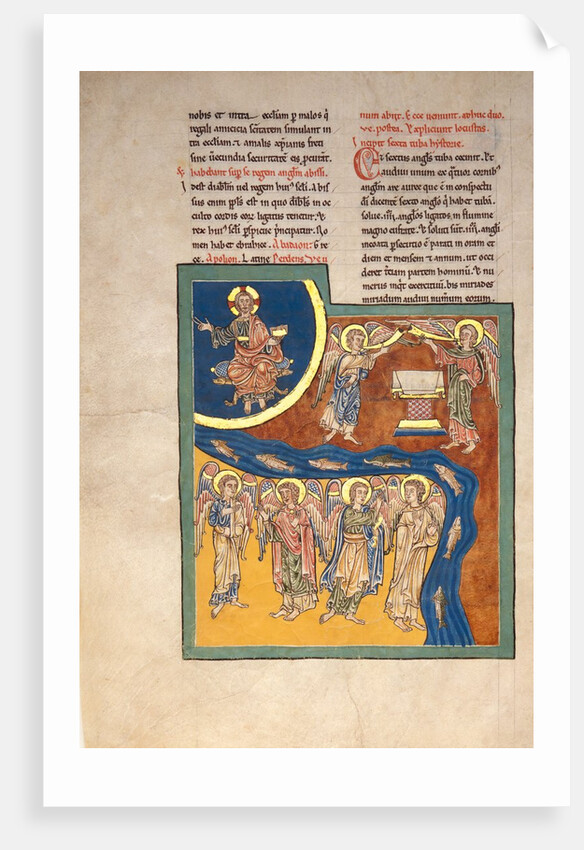 nobis et intra ecclīam p malos q̄
regali amicicia scītatem simulant in
tra ecclīam & amalis xp̄ianis freti
sine uerecundia securitate eis pcutāt.
& habebant sup se regem anglm̄ abissi.
Idest diablm̄ uel regem hui' sc̄li. Abis
sus enim ppl̄s est in quo diabl̄s in oc
culto cordis eor̄ ligatus tenetur. & ē
rex hui' sc̄li pspicue principatur. No
men habet ebraice. Abadaon. Gre
ce. Apolion. Latine Perdens. Ve u
num abiit. & ecce ueniunt. adhuc duo.
ve. postea. Expliciunt locustas.
Incipit sexta tuba hystorie.
Et sextus angl̄s tuba cecinit. Et
audiui unum ex qttuor cornib'
anglm̄ are auree que ē in conspectu
dī dicentē sexto anglo q̄ habet tubā.
solue .iiii. anglos ligatos, in flumine
magno eufrate. & soluti sunt .iiii. angli
incoata psecutio ē parati in oram et
diem et mensem & annum. ut occi
deret tciam partem hominū. & nu
merus inqt exercituū. bis miriades
miriadum audiui numerum eorum.